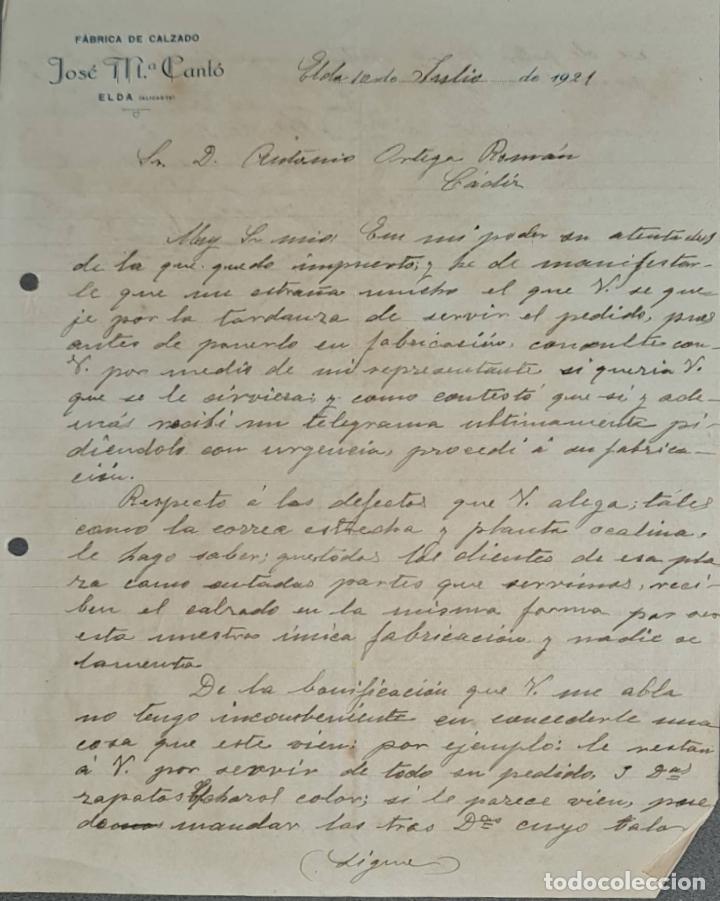 FÁBRICA DE CALZADO
José Mª Cantó
ELDA (ALICANTE)
Elda 10 de Julio de 1921
Sr. D. Antonio Ortega Román
Cádiz
Muy Sr mio: En mi poder su atenta
de la que quedo impuesto; y he de manifestar-
le que me estraña mucho el que V. se que-
je por la tardanza de servir el pedido, pues
antes de ponerlo en fabricación, consulte con
V. por medio de mi representante si queria V.
que se le sirviera; y como contestó que si y ade-
más recibi un telegrama ultimamente pi-
diéndolo con urgencia, procedi á su fabrica-
ción.
Respecto á los defectos que V. alega; táles
como la correa estrecha y planta ocalina,
le hago saber; que todos los clientes de esa pla
za como en todas partes que servimos, reci-
ben el calzado en la misma forma por ser
esta nuestra única fabricación y nadie se
lamenta.
De la bonificación que V. me abla
no tengo inconbeniente en concederle una
cosa que este vien; por ejemplo: le restan
á V. por servir de todo su pedido, 3 Das
zapatos charol color; si le parece vien, pue
do mandar las tres Das cuyo valor
(Sigue)
todocoleccion.net